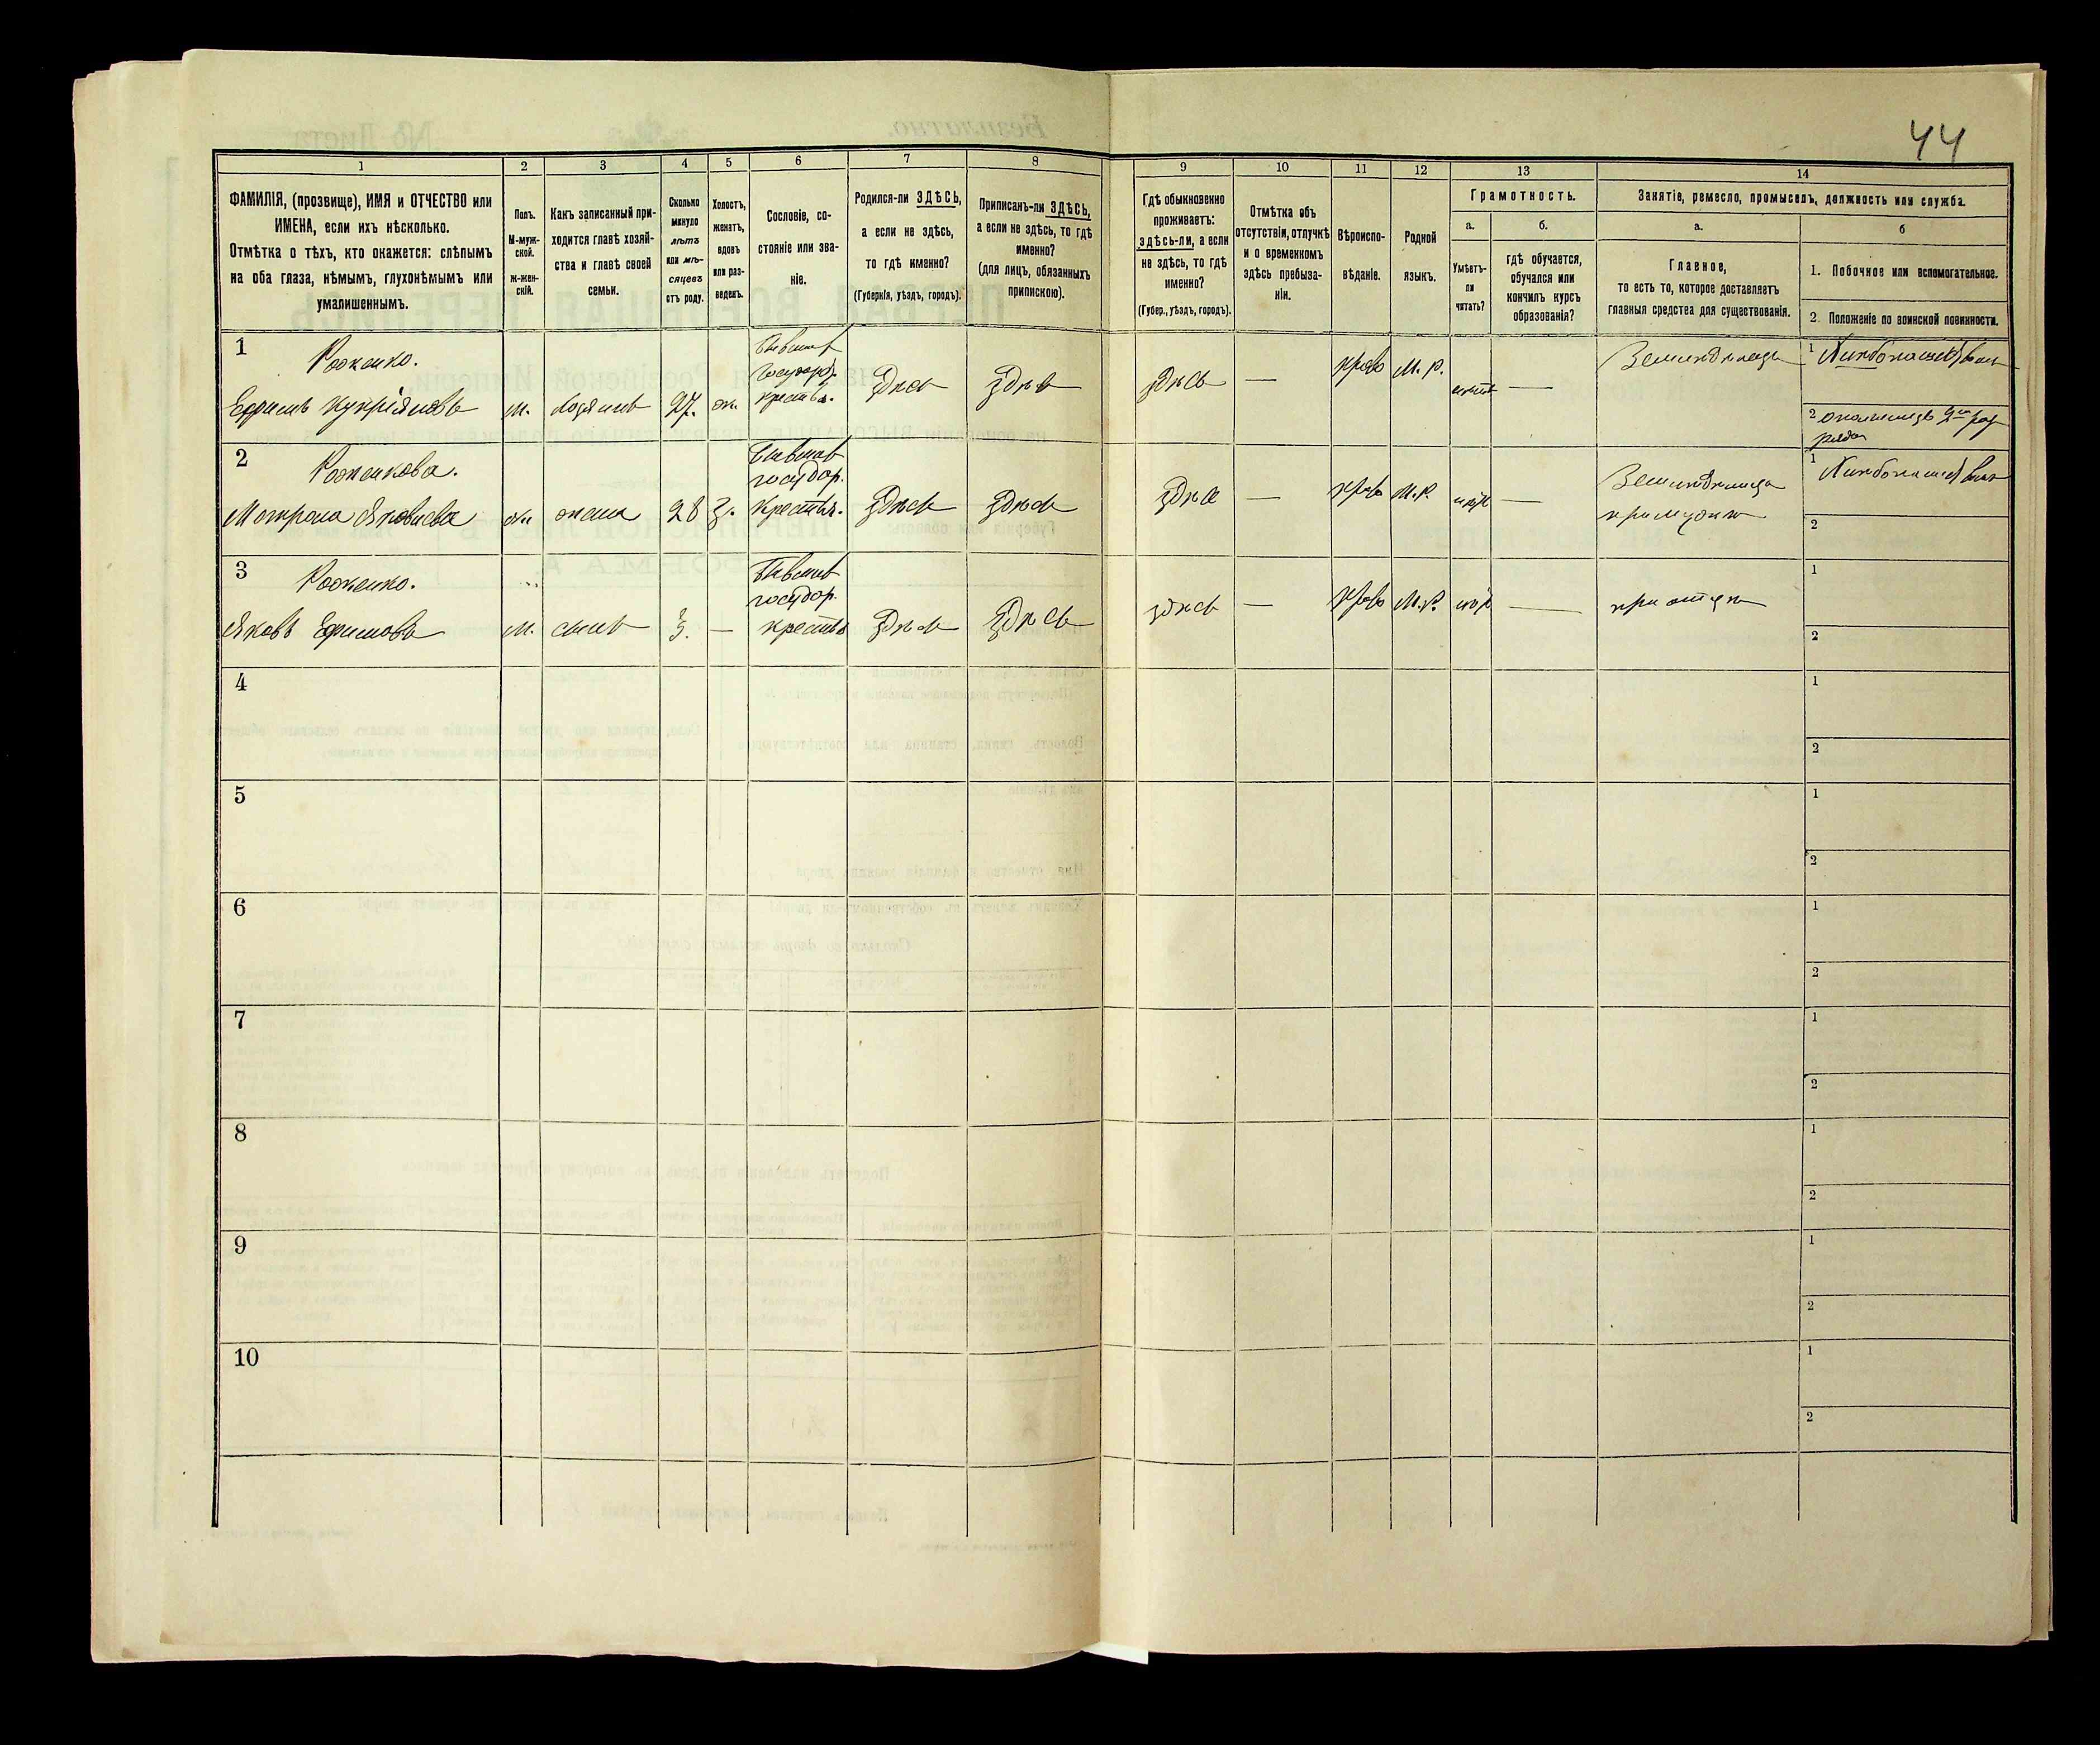 44
1
2
3
4
5
6
7
8
9
10
11
12
13
14
ФАМИЛІЯ, (прозвище), ИМЯ и ОТЧЕСТВО или
ИМЕНА, если ихъ нѣсколько.
Отмѣтка о тѣхъ, кто окажется: слѣпымъ
на оба глаза, нѣмымъ, глухонѣмымъ или
умалишеннымъ.
Полъ.
М-муж-
ской.
ж-жен-
скій.
Какъ записанный при-
ходится главѣ хозяй-
ства и главѣ своей
семьи.
Сколько
минуло
лѣтъ
или мѣ-
сяцевъ
отъ роду.
Холостъ,
женатъ,
вдовъ
или раз-
веденъ.
Сословіе, со-
стояніе или зва-
ніе.
Родился-ли ЗДѢСЬ,
а если не здѣсь,
то гдѣ именно?
(Губернія, уѣздъ, городъ).
Приписанъ-ли ЗДѢСЬ,
а если не здѣсь, то гдѣ
именно?
(для лицъ, обязанныхъ
припискою).
Гдѣ обыкновенно
проживаетъ:
здѣсь-ли, а если
не здѣсь, то гдѣ
именно?
(Губер., уѣздъ, городъ).
Отмѣтка объ
отсутствіи, отлучкѣ
и о временномъ
здѣсь пребыва-
ніи.
Вѣроиспо-
вѣданіе.
Родной
языкъ.
Грамотность.
а.
Умѣетъ-
ли
читать?
б.
гдѣ обучается,
обучался или
кончилъ курсъ
образованія?
Занятіе, ремесло, промыселъ, должность или служба.
а.
Главное,
то есть то, которое доставляетъ
главныя средства для существованія.
б
1. Побочное или вспомогательное.
2. Положеніе по воинской повинности.
1
Роженко.
Ефимъ
м. хозяинъ 27. ж.
Бывшій
государ.
крестьян.
здѣсь здѣсь
здѣсь — право М. Р. —
1
2
2
Роженкова.
Яковлева
ж жена 28 з.
Бывшая
государ.
крестьян.
здѣсь здѣсь
здѣсь — право М. Р. —
при мужѣ
1
2
3
Роженко.
Яковъ Ефимовъ
м. сынъ 3. —
Бывшій
государ.
крестьян
здѣсь здѣсь
здѣсь — право М. Р. — при отцѣ
1
2
4
1
2
5
1
2
6
1
2
7
1
2
8
1
2
9
1
2
10
1
2